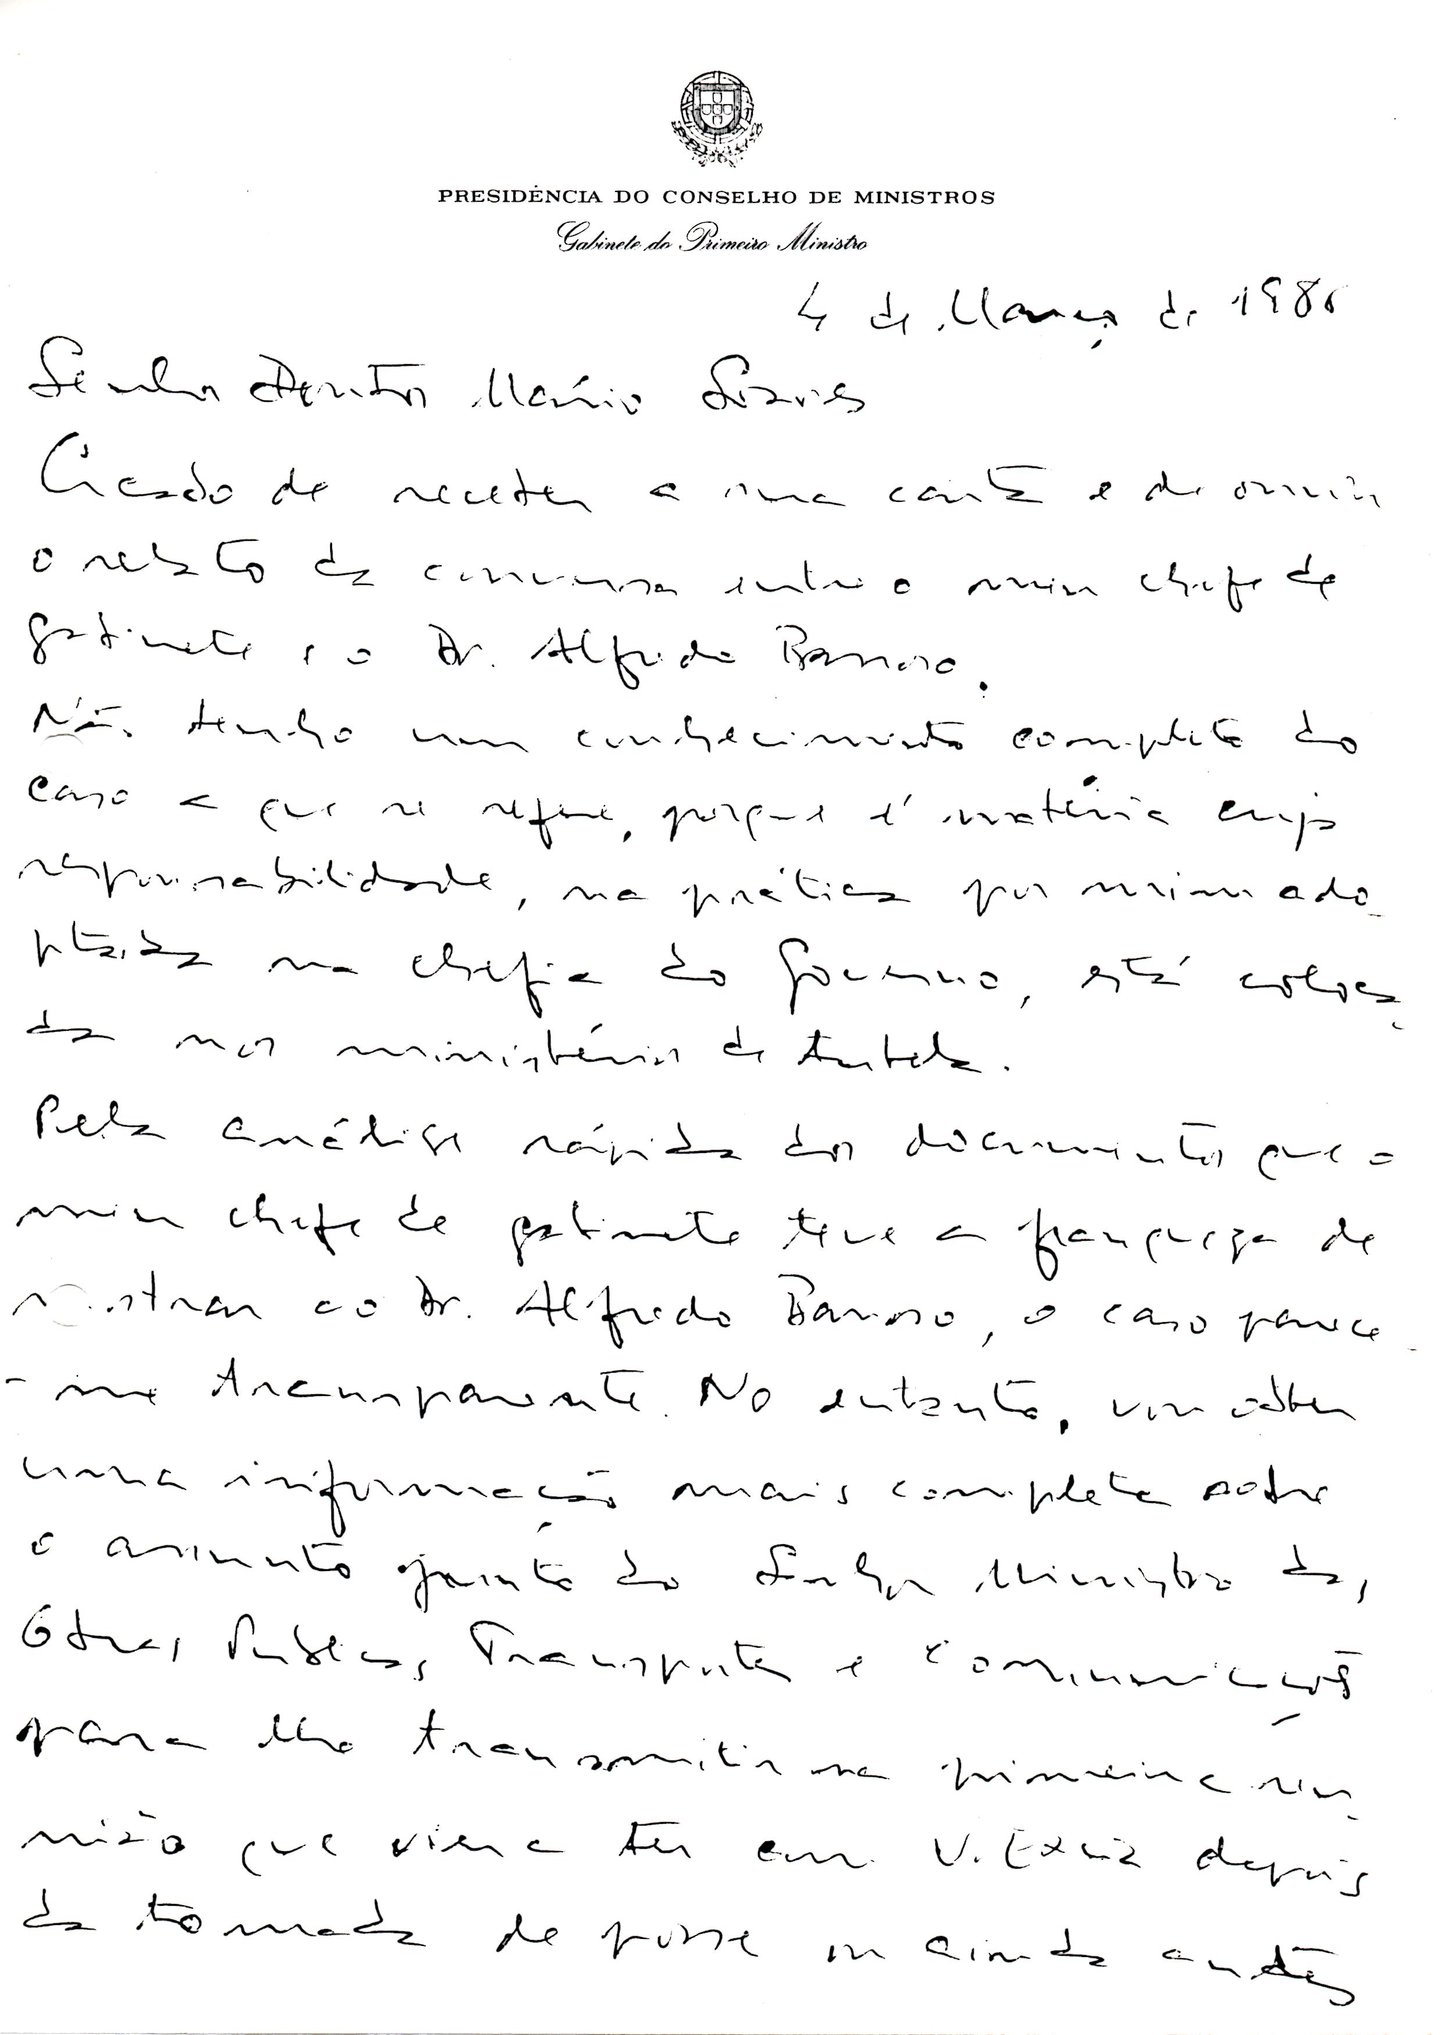 PRESIDÊNCIA DO CONSELHO DE MINISTROS
Gabinete do Primeiro Ministro
4 de Março de 1986
Senhor Doutor Mário Soares
Acabo de receber a sua carta e de ouvir
o relato da conversa entre o meu chefe de
gabinete e o Dr. Alfredo Barroso.
Não tenho um conhecimento completo do
caso a que se refere, porque é matéria cuja
responsabilidade, na prática por mim ado-
ptada na chefia do Governo, está coloca-
da nos ministérios de tutela.
Pela análise rápida dos documentos que o
meu chefe de gabinete teve a franqueza de
mostrar ao Dr. Alfredo Barroso, o caso parece
-me transparente. No entanto, vou obter
uma informação mais completa sobre
o assunto junto do Senhor Ministro das
Obras Públicas, Transportes e Comunicações
para lha transmitir na primeira reu-
nião que viera ter com V. Excia depois
da tomada de posse ou ainda antes